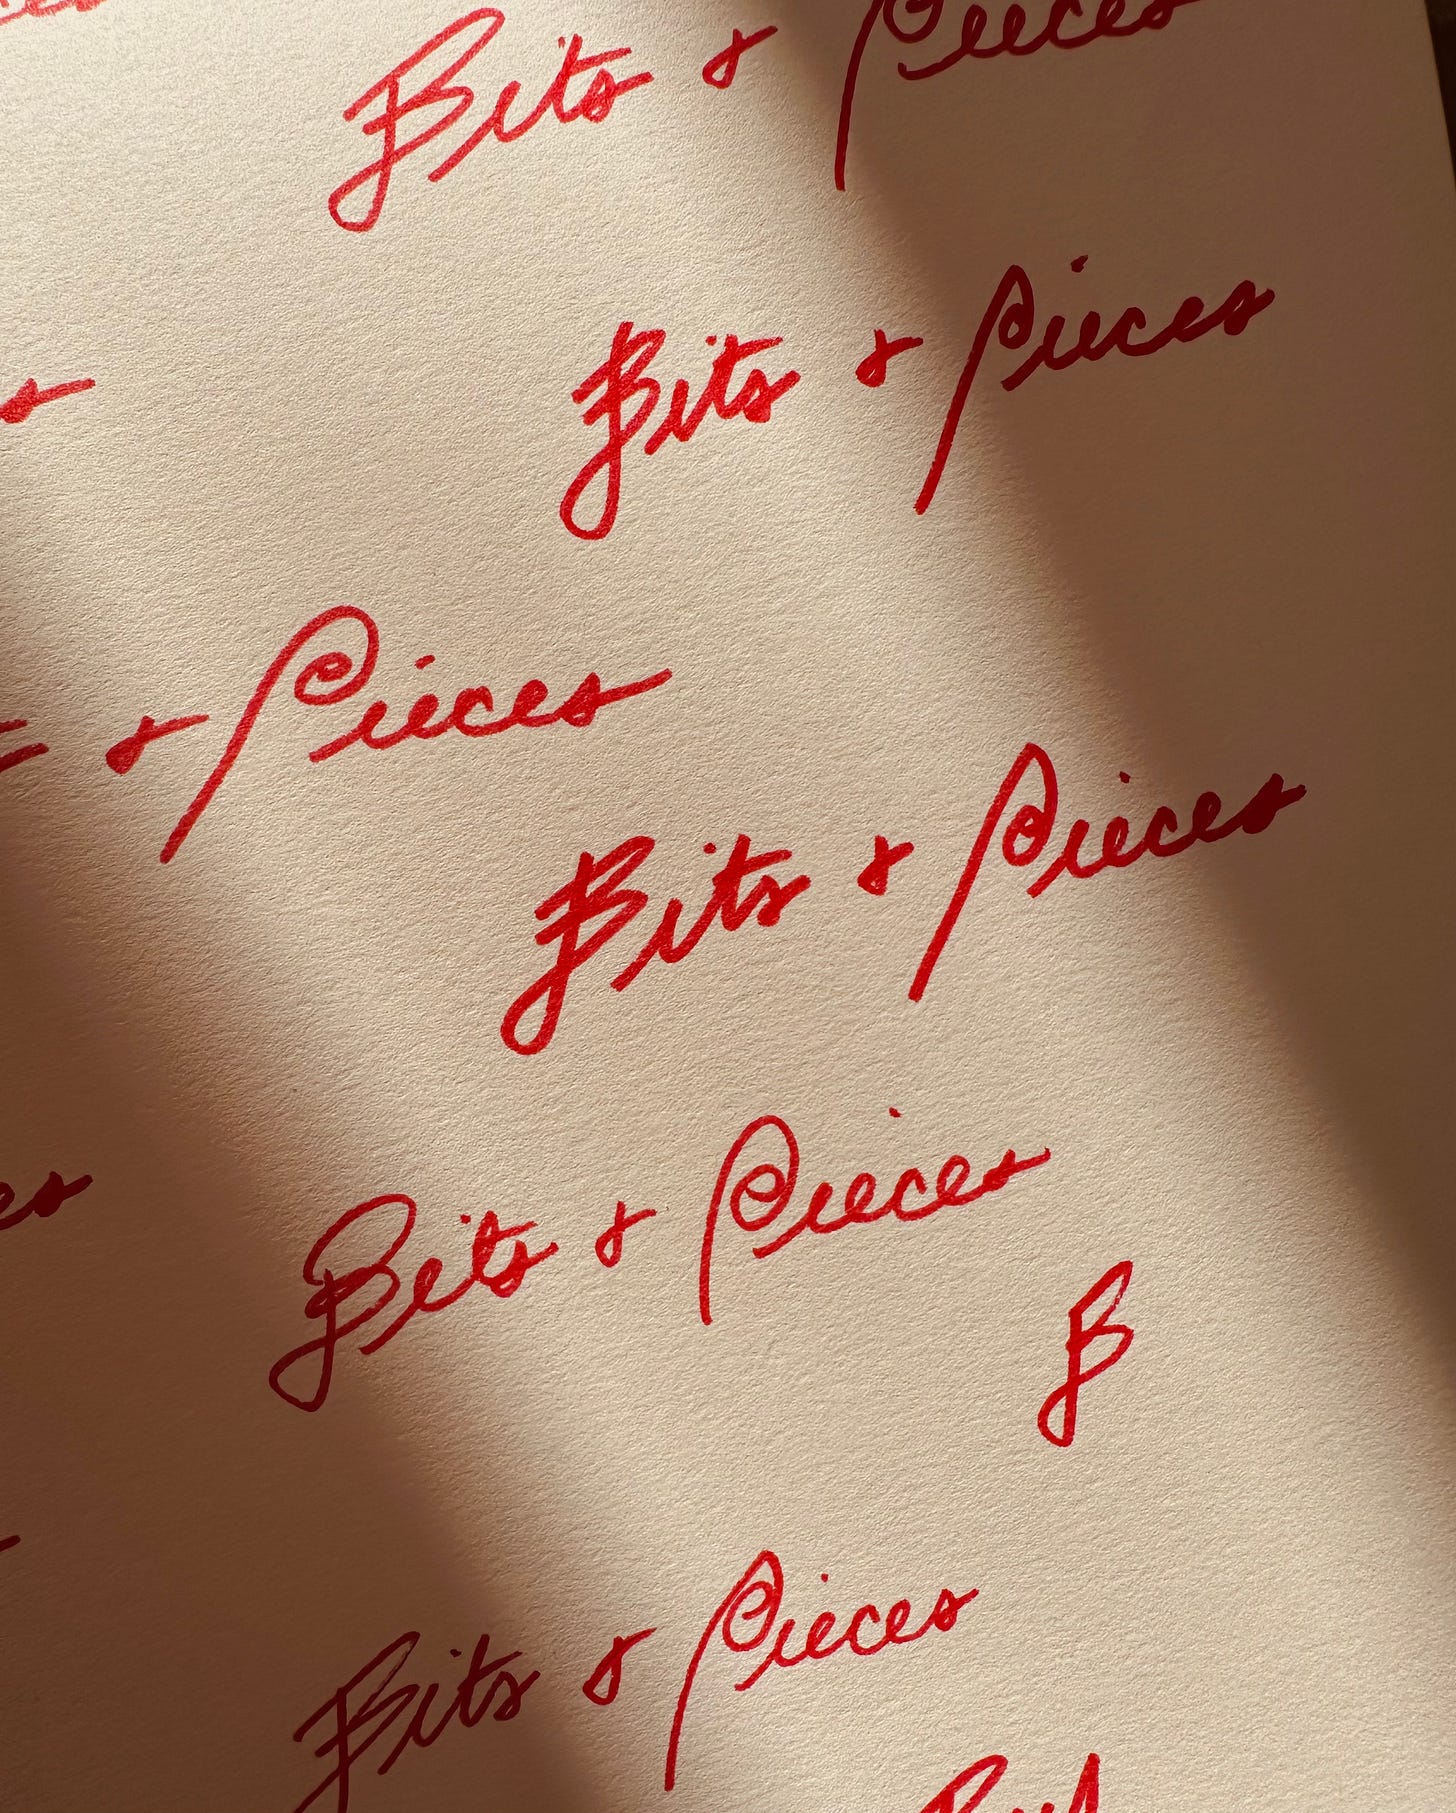 Bits & Pieces
Bits & Pieces
& Pieces
Bits & Pieces
Bits & Pieces
B
Bits & Pieces